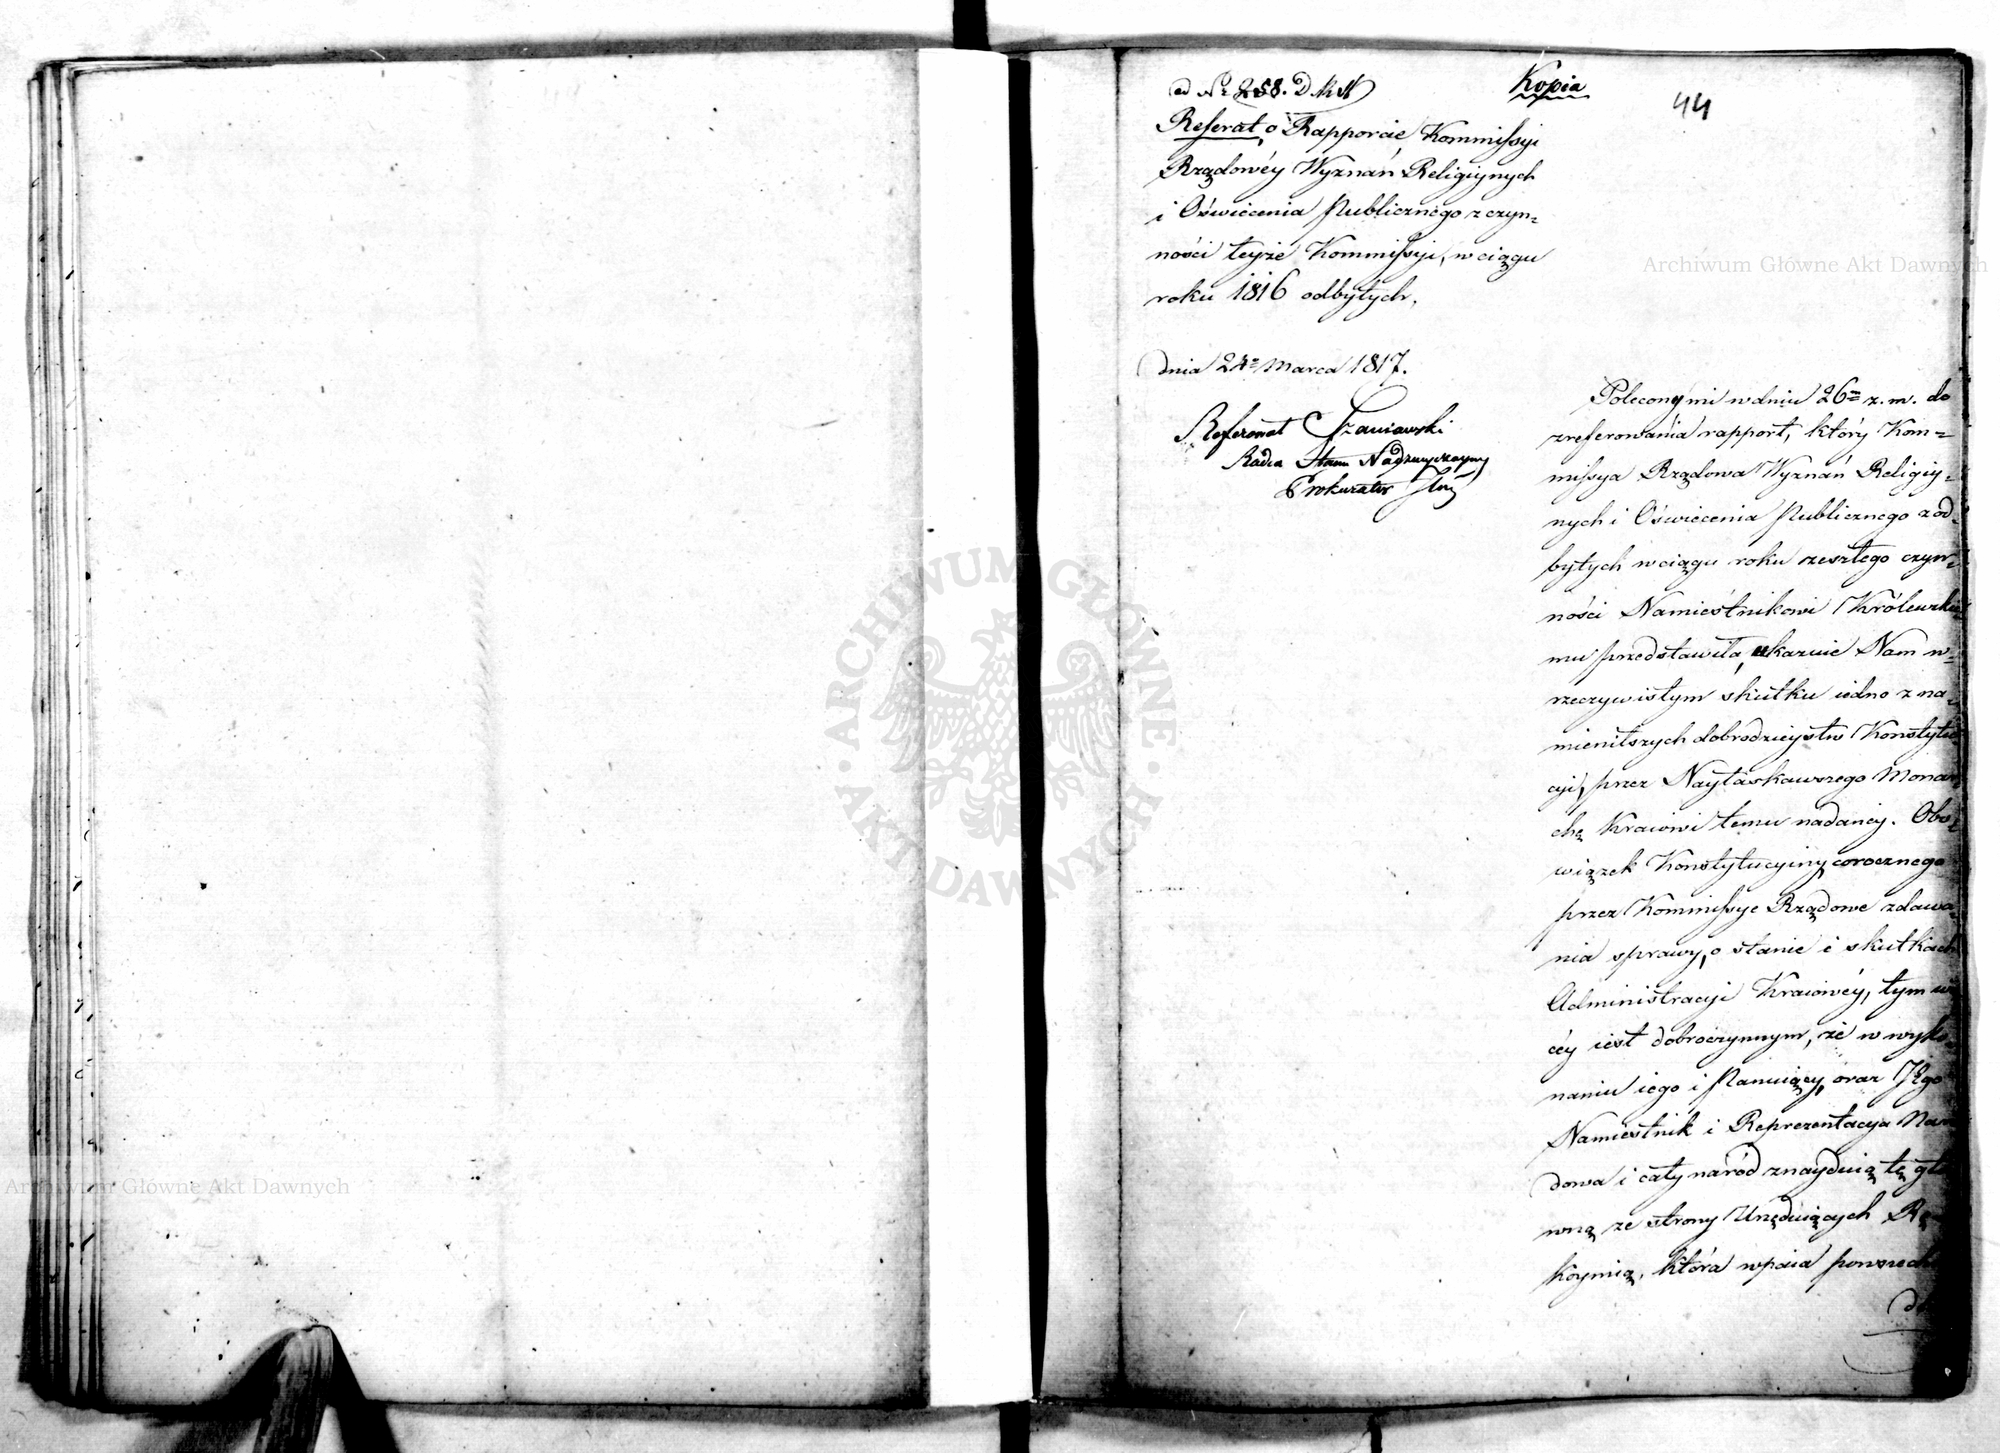 ad Nr 258. D
Kopia
44
Referat o Rapporcie Kommissyi
Rządowéy Wyznań Religiynych
i Oświecenia Publicznego z czyn=
ności teyże Kommissyi, w ciągu
roku 1816 odbytych.
dnia 24 Marca 1817.
Referował Szaniawski
Radca Stanu Nadzwyczayny
Prokurator
Polecony mi w dniu 26 z. m. do
zreferowania rapport, który Kom=
missya Rządowa Wyznań Religiy=
nych i Oświecenia Publicznego z od=
bytych w ciągu roku zeszłego czyn=
ności Namiestnikowi Królewskie
mu przedstawiła, ukazuie Nam w=
rzeczywistym skutku iedno z na=
mienitszych dobrodzieystw Konstytu
cyi, przez Nayłaskawszego Monar
chę Kraiowi temu nadanéy. Obo=
wiązek Konstytucyiny corocznego
przez Kommissye Rządowe zdawa=
nia sprawy, o stanie i skutkach
Administracyi Kraiowéy, tym wię
céy iest dobroczynnym, że w wyko=
naniu iego i Panuiący, oraz JEgo
Namiestnik i Reprezentacya Naro
dowa i cały naród znayduią tę głó
wną ze strony Urzęduiących Rę
koymią, która wpaia powszech
Archiwum Główne Akt Dawnych
Archiwum Główne Akt Dawnych
ARCHIWUM GŁÓWNE · AKT DAWNYCH ·